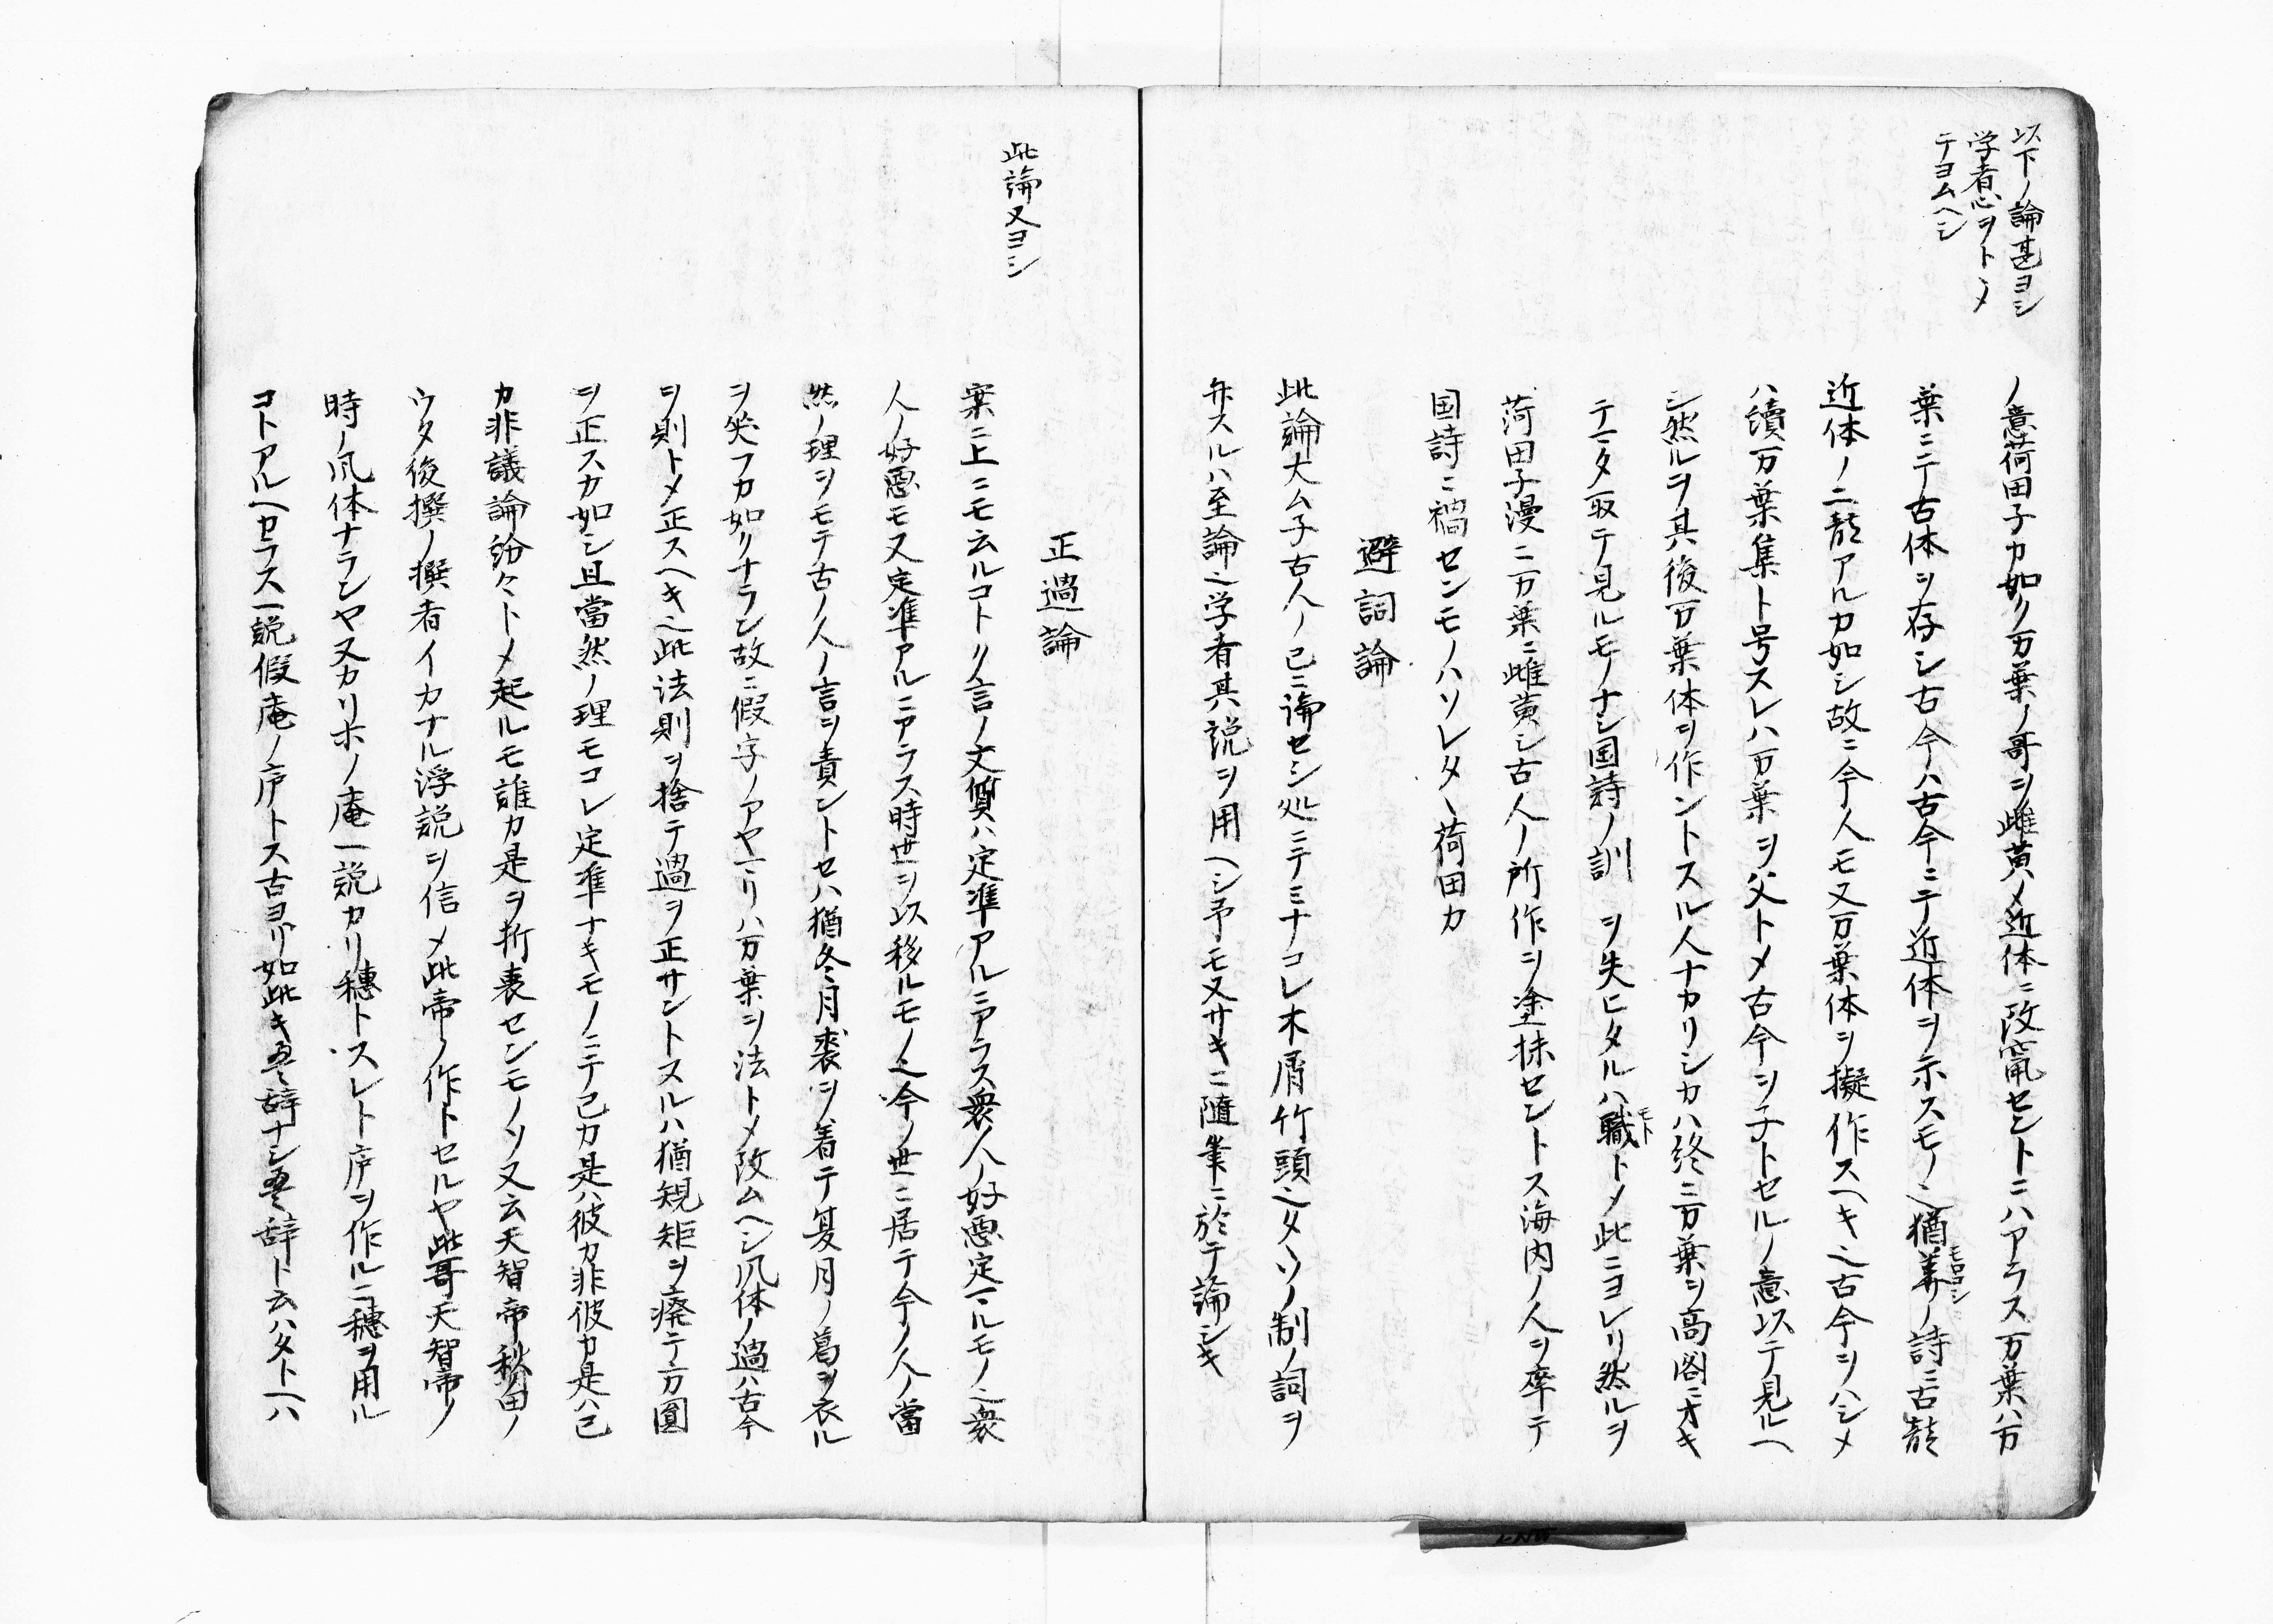 以下ノ論甚ヨシ
学者心ヲトヽメ
テヨムヘシ
ノ意荷田子カ如ク万葉ノ哥ヲ雌黄〆近体ニ改竄セントニハアラス万葉ハ万
葉ニテ古体ヲ存シ古今ハ古今ニテ近体ヲ示スモノ也猶華モロコシノ詩ニ古詩
近体ノ二詩アルカ如シ故ニ今人モ又万葉体ヲ擬作スヘキ也古今ヲハシメ
ハ續万葉集ト号スレハ万葉ヲ父ト〆古今ヲ子トセルノ意以テ見ルヘ
シ然ルヲ其後万葉体ヲ作ントスル人ナカリシカハ終ニ万葉ヲ高閣ニオキ
テマタ取テ見ルモノナシ国詩ノ訓ヲ失ヒタルハ職モトト〆此ニヨレリ然ルヲ
荷田子漫ニ万葉ニ雌黄シ古人ノ所作ヲ塗抹セントス海内ノ人ヲ率テ
国詩ニ禍センモノハソレタヽ荷田カ
避詞論
此論大ム子古人ノ已ニ論セシ処ニテミナコレ木屑竹頭也タヽソノ制ノ詞ヲ
弁スルハ至論也学者其説ヲ用ヘシ予モ又サキニ随筆ニ於テ論シキ
正過論
此論又ヨシ
案ニ上ニモ云ルコトク言ノ文質ハ定準アルニアラス衆人ノ好悪定マルモノ也衆
人ノ好悪モ又定準アルニアラス時世ヲ以移ルモノ也今ノ世ニ居テ今ノ人ノ當
然ノ理ヲモテ古ノ人ノ言ヲ責ントセハ猶冬月裘ヲ着テ夏月ノ葛ヲ衣ル
ヲ笑フカ如クナラン故ニ假字ノアヤマリハ万葉ヲ法ト〆改ムヘシ凡体ノ過ハ古今
ヲ則ト〆正スヘキ也此法則ヲ捨テ過ヲ正サントスルハ猶規矩ヲ廃テ方圓
ヲ正スカ如シ且當然ノ理モコレ定準ナキモノニテ己カ是ハ彼カ非彼カ是ハ己
カ非議論紛々ト〆起ルモ誰カ是ヲ折衷センモノソ又云天智帝ノ秋田ノ
ウタ後撰ノ撰者イカナル浮説ヲ信〆此帝ノ作トセルヤ此哥天智帝ノ
時ノ凡体ナランヤ又カリホノ庵一説カリ穂トスレト序ヲ作ルニ穂ヲ用ル
コトアルヘカラス一説假庵ノ序トス古ヨリ如此キ畳辞ナシ畳辞ト云ハタトヘハ